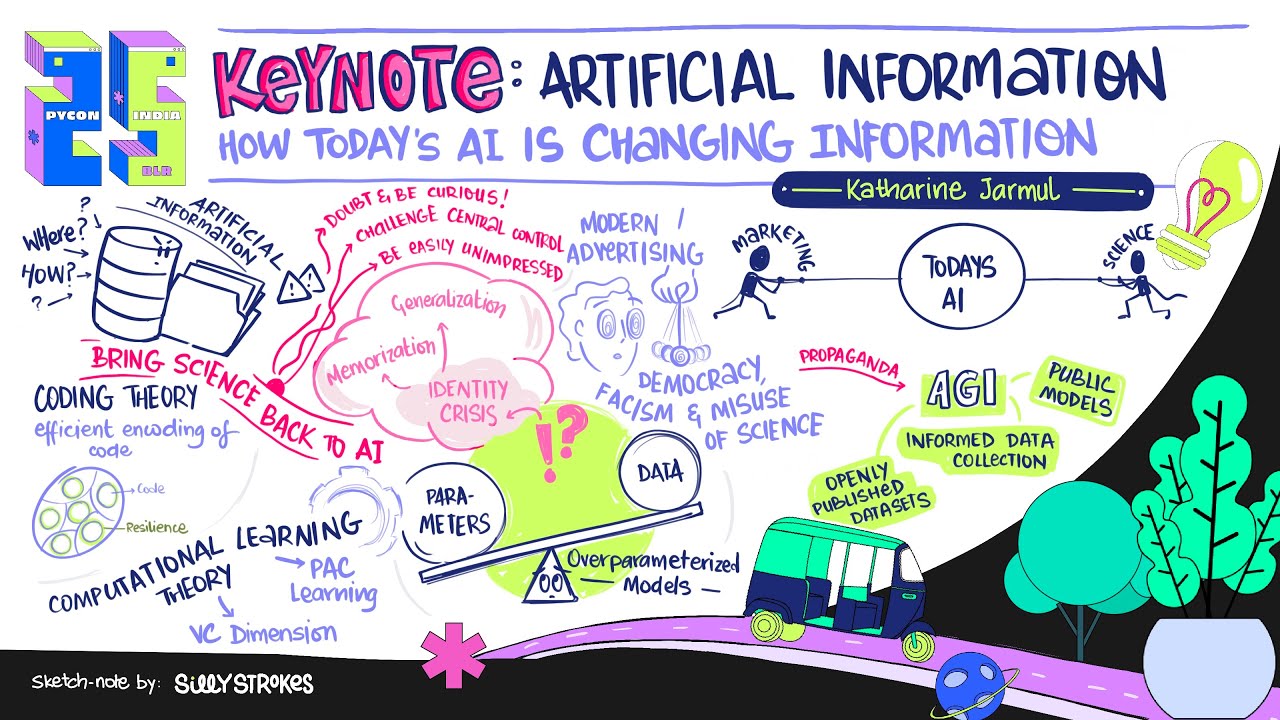 PYCON INDIA
BLR
KEYNOTE: ARTIFICIAL INFORMATION
HOW TODAY'S AI IS CHANGING INFORMATION
Katharine Jarmul
ARTIFICIAL
INFORMATION
?
WHERE?
HOW?
?
DOUBT & BE CURIOUS!
CHALLENGE CENTRAL CONTROL
BE EASILY UNIMPRESSED
BRING SCIENCE BACK TO AI
Generalization
Memorization
IDENTITY
CRISIS
!?
MODERN
ADVERTISING
DEMOCRACY,
FACISM & MISUSE
OF SCIENCE
MARKETING
TODAYS
AI
SCIENCE
PROPAGANDA
AGI
PUBLIC
MODELS
INFORMED DATA
COLLECTION
OPENLY
PUBLISHED
DATASETS
CODING THEORY
efficient encoding of
code
Code
Resilience
COMPUTATIONAL LEARNING
THEORY
PAC
Learning
VC Dimension
PARA-
METERS
DATA
Overparameterized
Models
Sketch-note by: SillyStrokes